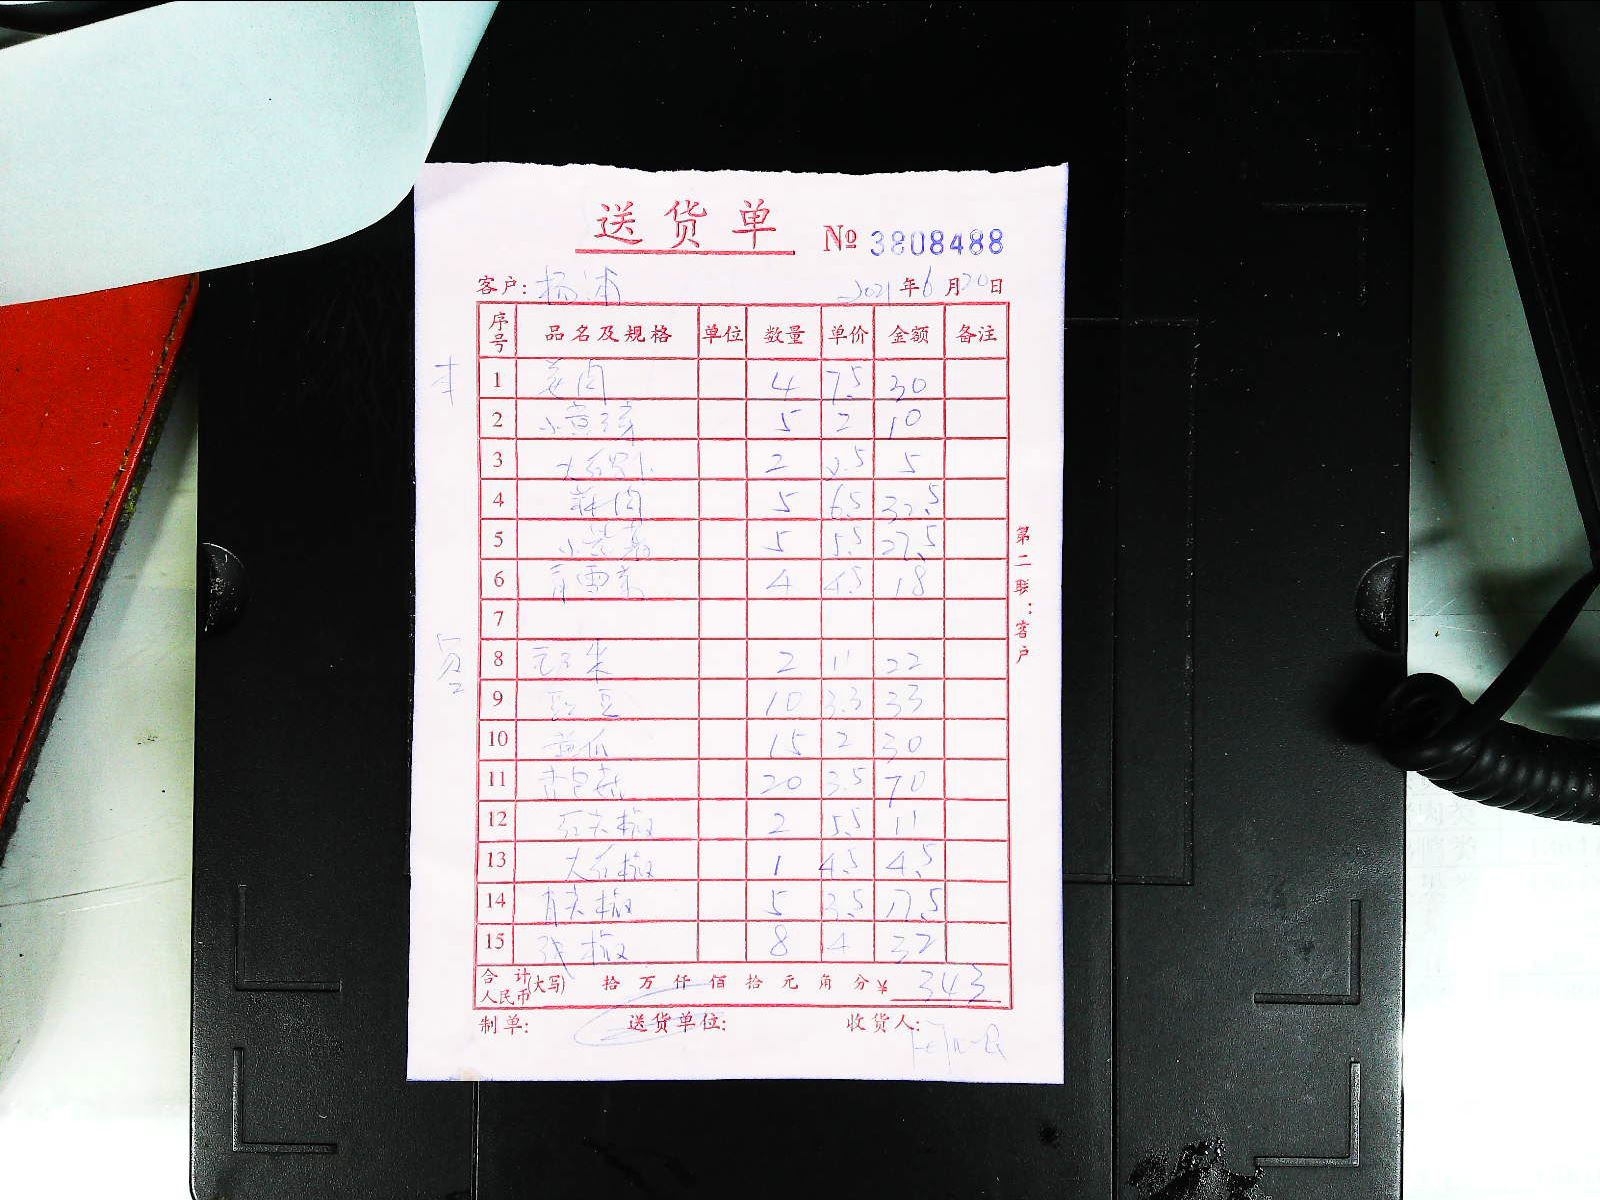 送货单 № 3808488
客户: 杨浦 2021年6月20日
序号 品名及规格 单位 数量 单价 金额 备注
1 姜肉 4 7.5 30
2 小黄 5 2 10
3 大 2 2.5 5
4 蒜肉 5 6.5 32.5
5 小 5 5.5 27.5
6 4 4.5 18
7
8 玉米 2 11 22
9 豆 10 3.3 33
10 瓜 15 2 30
11 杏鲍菇 20 3.5 70
12 红尖椒 2 5.5 11
13 大红椒 1 4.5 4.5
14 青尖椒 5 3.5 17.5
15 椒 8 4 32
合计人民币(大写) 拾 万 仟 佰 拾 元 角 分 ¥ 343
制单: 送货单位: 收货人:
第二联:客户